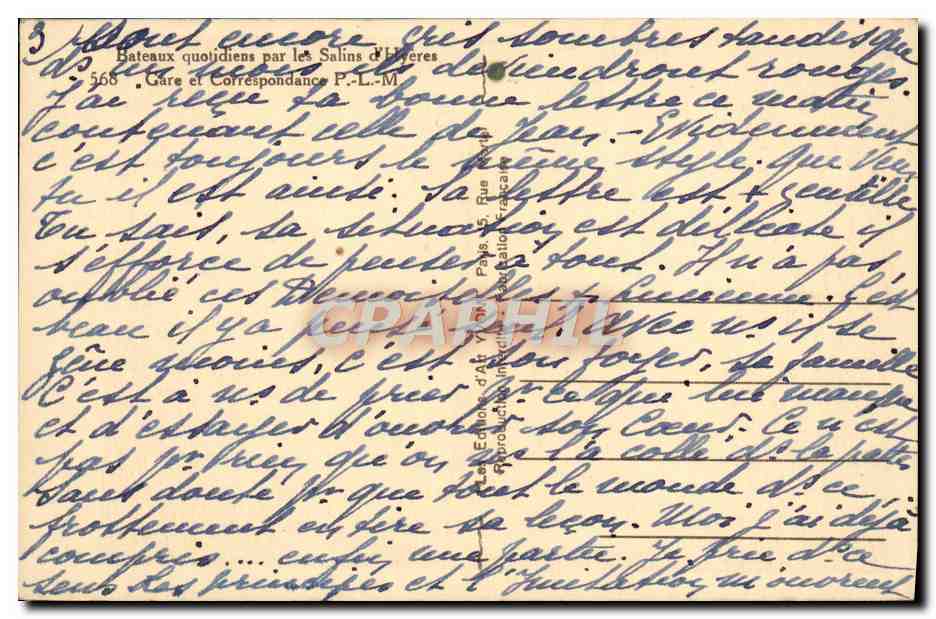 3
sont encore gris sombres tandis que
Bateaux quotidiens par les Salins d'Hyères
ds deviendront rouges.
568 Gare et Correspondance P.-L.-M
J'ai reçu ta bonne lettre ce matin
contenant celle de Jean - Evidemment
c'est toujours le même style. Que veux
tu il est ainsi. Sa lettre est + gentille
Tu sais, sa situation est délicate il
s'efforce de penser à tout. Il n'a pas
oublié ces Demoiselles C'est
beau il y a avec ns il se
gêne moins, c'est son foyer, sa famille
C'est à ns de prier pr ce qui lui manque
et d'essayer d'ouvrir son Coeur. Ce n'est
pas pr rien que on à celle de la
Sans doute pr que tout le monde ds ce
frottement en tire sa leçon. Moi j'ai déjà
compris.... enfin une partie. Je prie ds ce
sens Les principes et l'Imitation m'ouvrent
Les Editions d'Art YVON, Paris. 15, Rue Martel
Reproduction Interdite. Fabrication Française
CPAPHIL